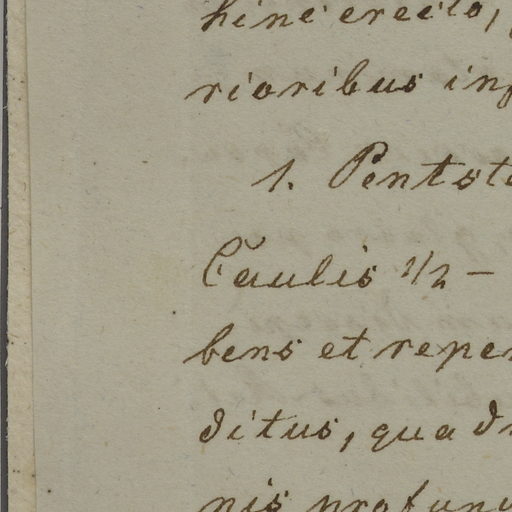 hinc erecto,
rioribus inf
1. Pentste
Caulis 1/2 —
bens et repen
ditus, quadr
nis profund